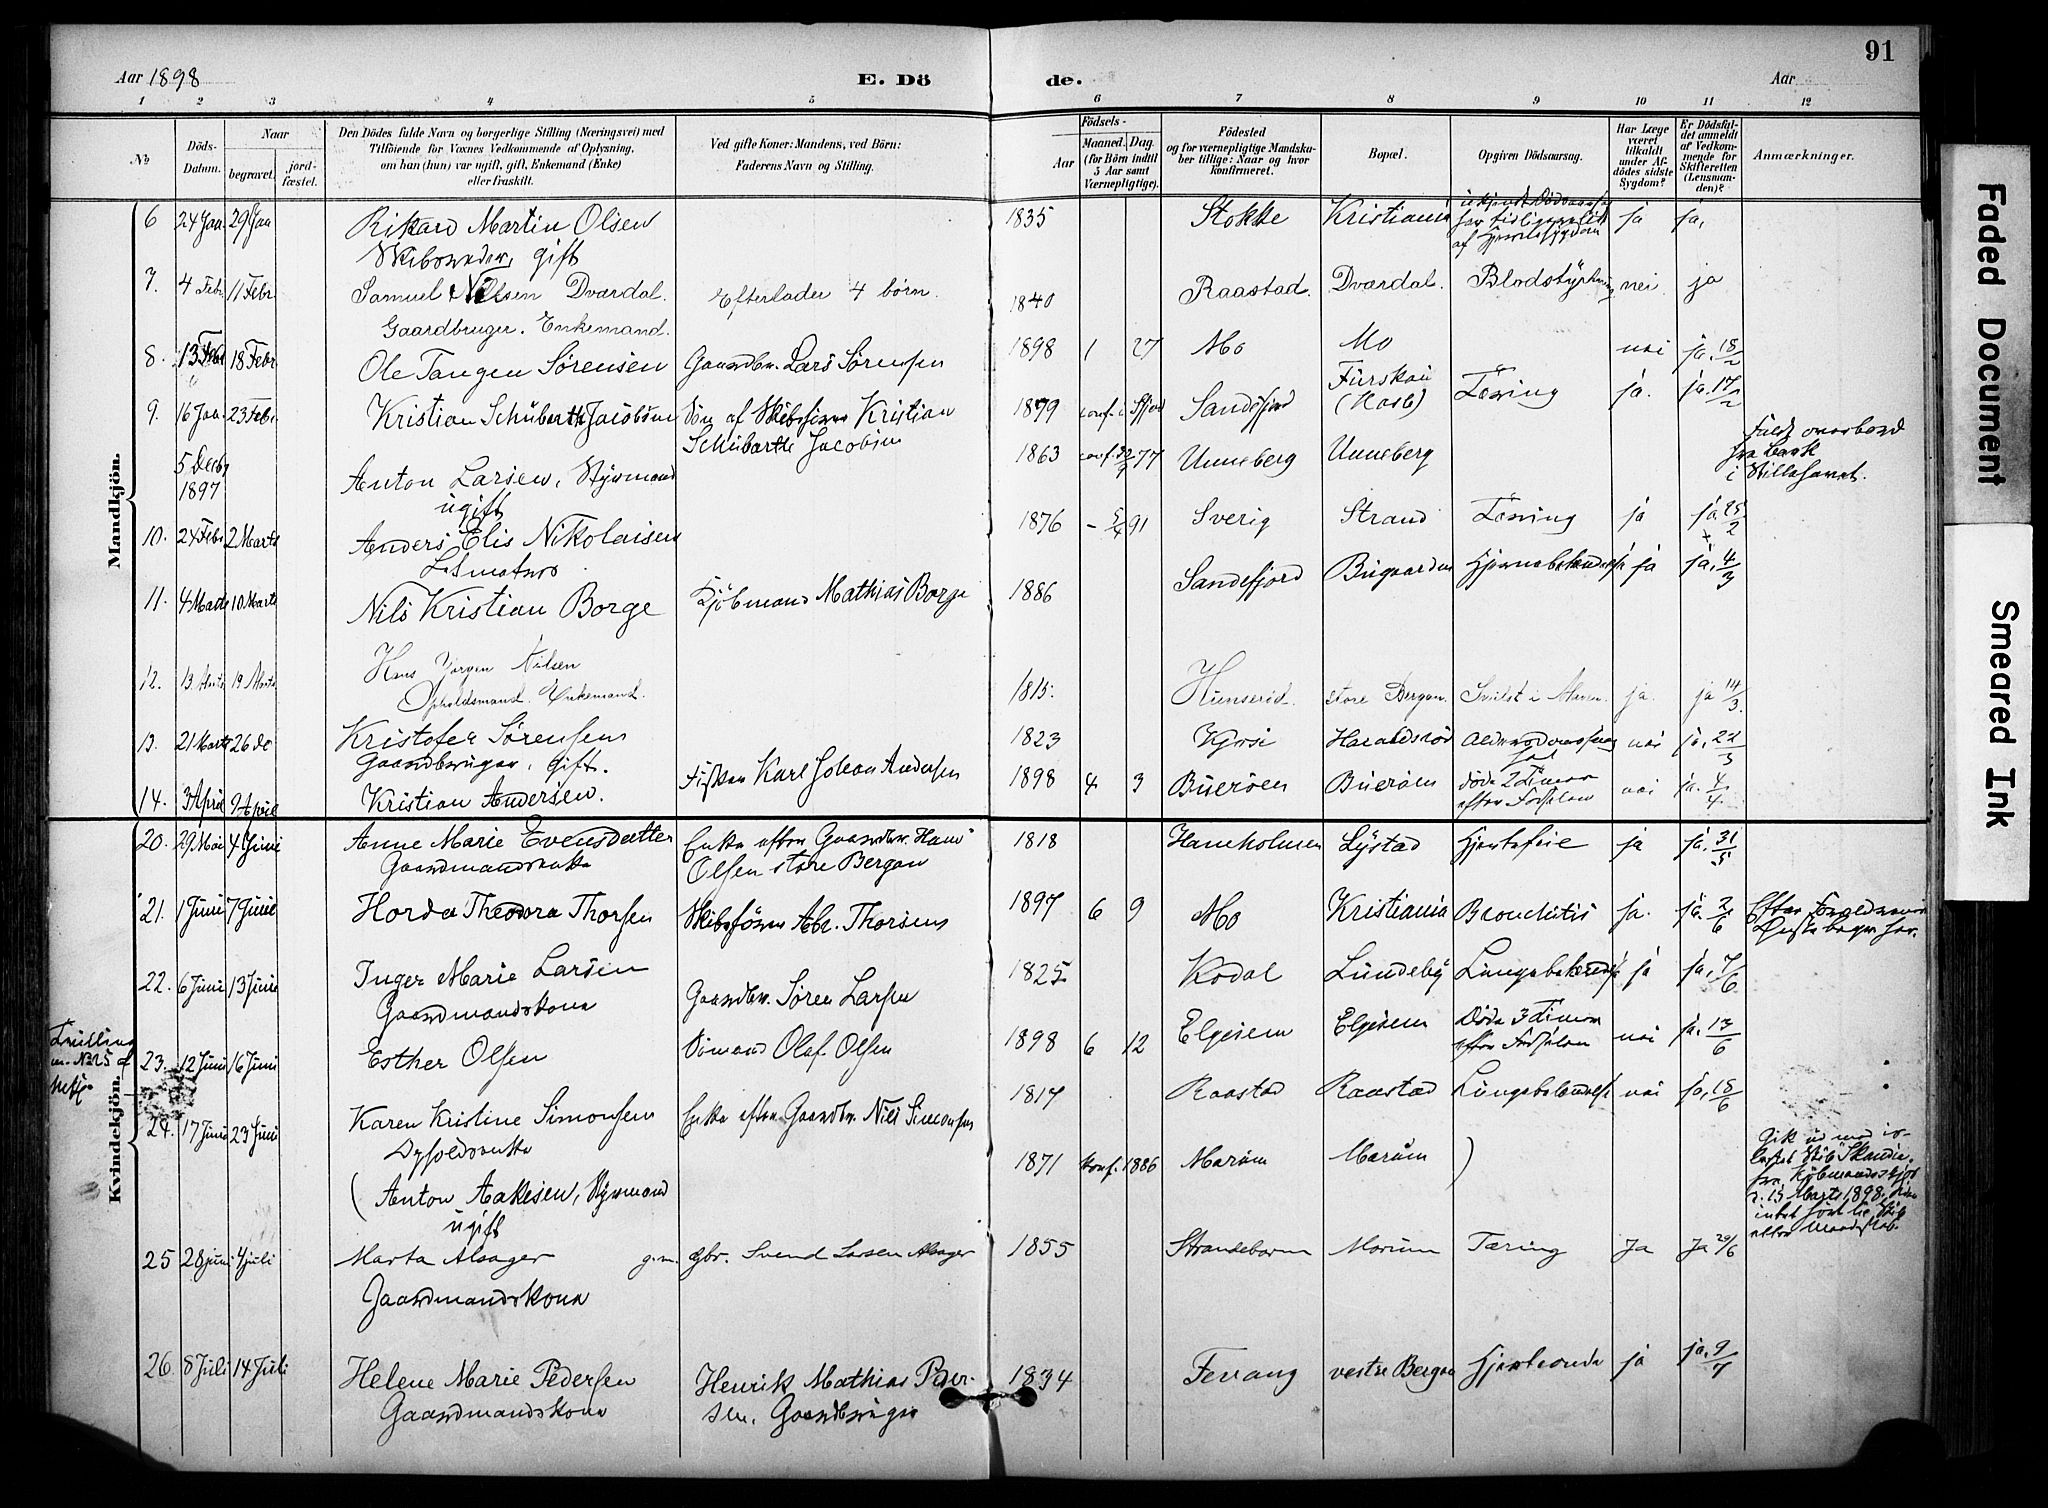 91
Aar 1898
E. Dö
de.
Aar
1 2 3 4 5 6 7 8 9 10 11 12
No
Döds-Datum.
Naar
begravet.
jord-fæstet.
Den Dödes fulde Navn og borgerlige Stilling (Næringsvei) med
Tilföiende for Voxnes Vedkommende af Oplysning,
om han (hun) var ugift, gift, Enkemand (Enke)
eller fraskilt.
Ved gifte Koner: Mandens, ved Börn:
Faderens Navn og Stilling.
Födsels-
Aar
Maaned. Dag.
(for Börn indtil
5 Aar samt
Værnepligtige).
Födested
og for værnepligtige Mandska-
ber tillige: Naar og hvor
konfirmeret.
Bopæl.
Opgiven Dödsaarsag.
Har Læge
været
tilkaldt
under Af-
dödes sidste
Sygdom?
Er Dödsfal-
det anmeldt
af Vedkom-
mende for
Skifteretten
(Lensman-
den)?
Anmærkninger.
Mandkjön.
6 24 Jan 29 Jan Rikard Martin Olsen 1835 Stokke Kristiania ja ja,
gift
7. 4 Febr 11 Febr. Samuel Nilsen Dvardal. Efterlader 4 børn. 1840 Raastad. Dvardal. nei ja
Gaardbruger. Enkemand.
8. 13 Febr 18 Febr Ole Tangen Sørensen Gaardbr. Lars Sørensen 1898 1 27 Mo Mo nei ja. 18/2
9. 16 Jan 23 Febr. Kristian Schubarth Jacobsen Søn af Skibsfører Kristian 1879 conf. i Sandefjord Tæring ja. ja. 17/2
Schubarth Jacobsen
5 Decbr 1897 Anton Larsen, Styrmand 1863 conf. 77 Unneberg Unneberg Faldt overbord
ugift
fra Bark
i Stillehavet.
10. 24 Febr 2 Marts Anders Elis Nikolaisen 1876 – 5/4 91 Sverig Strand Tæring ja ja 25/2
Letmatros
11. 4 Marts 10 Marts Nils Kristian Borge Kjöbmand Mathias Borge 1886 Sandefjord Bugaarden Hjernebetændelse ja ja, 4/3
12. 13 Marts 19 Marts Hans Jørgen Nilsen 1815. Hunserid. store Bergan. ja. ja 14/3.
Opholdsmand. Enkemand.
13. 21 Marts 26 de Kristofer Sørensen 1823 Haraldsrød nei ja, 22/3
Gaardbruger, gift.
14. 3 April 9 April Kristian Andersen. Fisker Karl Johan Andersen 1898 4 3 Buerøen Buerøen døde 2 Timer nei ja. 4/4
efter Fødselen
Kvindekjön.
20. 29 Mai 4 Juni Anne Marie Evensdatter Enke efter Gaardbr. Hans 1818 Haneholmen Lystad Hjertefeil ja ja. 31/5
Gaardmandsenke Olsen store Bergan
21. 1 Juni 7 Juni Horda Theodora Thorsen Skibsfører Abr. Thorsens 1897 6 9 Mo Kristiania Bronchitis ja. ja. 2/6 Efter Forældrenes
Ønske begr. her.
22. 6 Juni 13 Juni Inger Marie Larsen Gaardbr. Søren Larsen 1825 Kodal Lundeby Lungebetændelse ja ja, 7/6
Gaardmandskone
23. 12 Juni 16 Juni Esther Olsen Sømand Olaf Olsen 1898 6 12 Elgesem Elgesem Døde 3 Timer nei ja. 13/6
efter Fødselen
Tvilling
24. 17 Juni 23 Juni Karen Kristine Simonsen Enke efter Gaardbr. Nils Simonsen 1817 Raastad Raastad Lungebetændelse nei ja, 18/6
( Anton Aakesen, Styrmand 1871 konf. 1886 Marøm Marøm )
ugift
Gik ud med
Skib Skandia
fra
d. 15 Marts 1898, siden
intet hørt til Skib
eller Mandskab.
25 28 juni 4 juli Marta Alsager g.m. gbr. Svend Larsen Alsager 1855 Strandebarm Marum Tæring Ja Ja 29/6
Gaardmandskone
26 8 Juli 14 Juli Helene Marie Pedersen Henrik Mathias Peder- 1834 Fevang vestre Bergan Hjerteonde ja ja. 9/7
Gaardmandskone sen, Gaardbruger
Faded Document
Smeared Ink